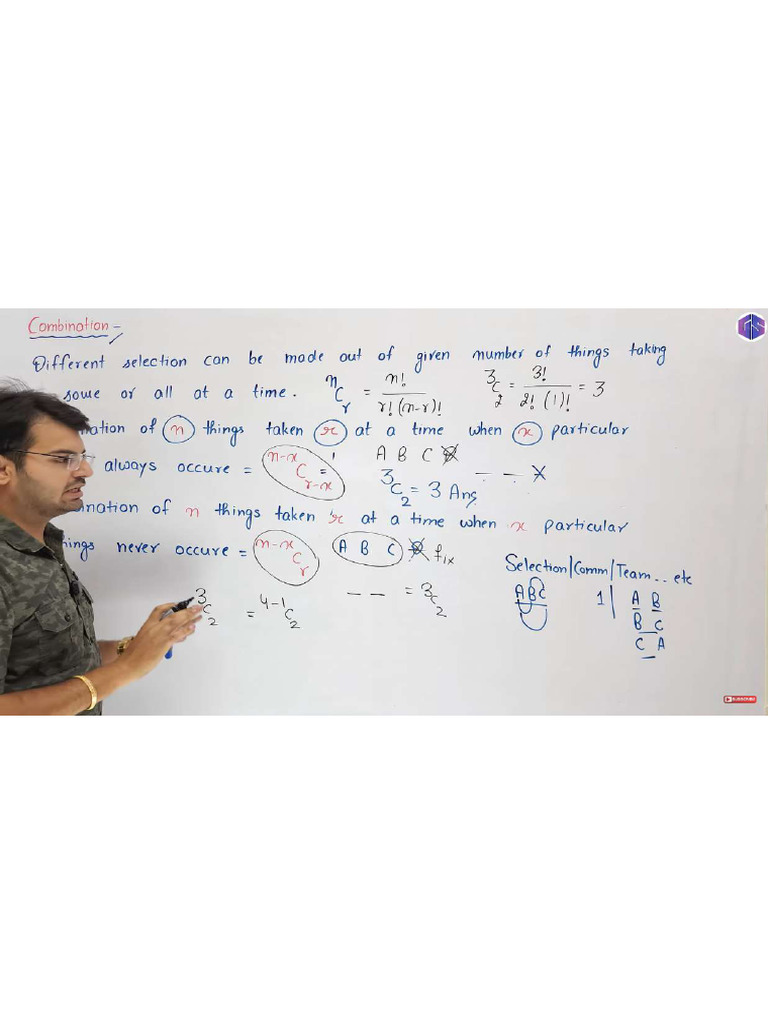 Combination -
Different selection can be made out of given number of things taking
some or all at a time. ⁿCᵣ = n! / r! (n-r)! ³C₂ = 3! / 2! (1)! = 3
nation of n things taken r at a time when x particular
always occure = ⁿ⁻ˣCᵣ₋ₓ = A B C
³C₂ = 3 Ans - - X
nation of n things taken r at a time when x particular
hings never occure = ⁿ⁻ˣCᵣ A B C fix
³C₂ = ⁴⁻¹C₂ - - = ³C₂
Selection/Comm/Team.. etc
ABC 1 | A B
B C
C A
SUBSCRIBE